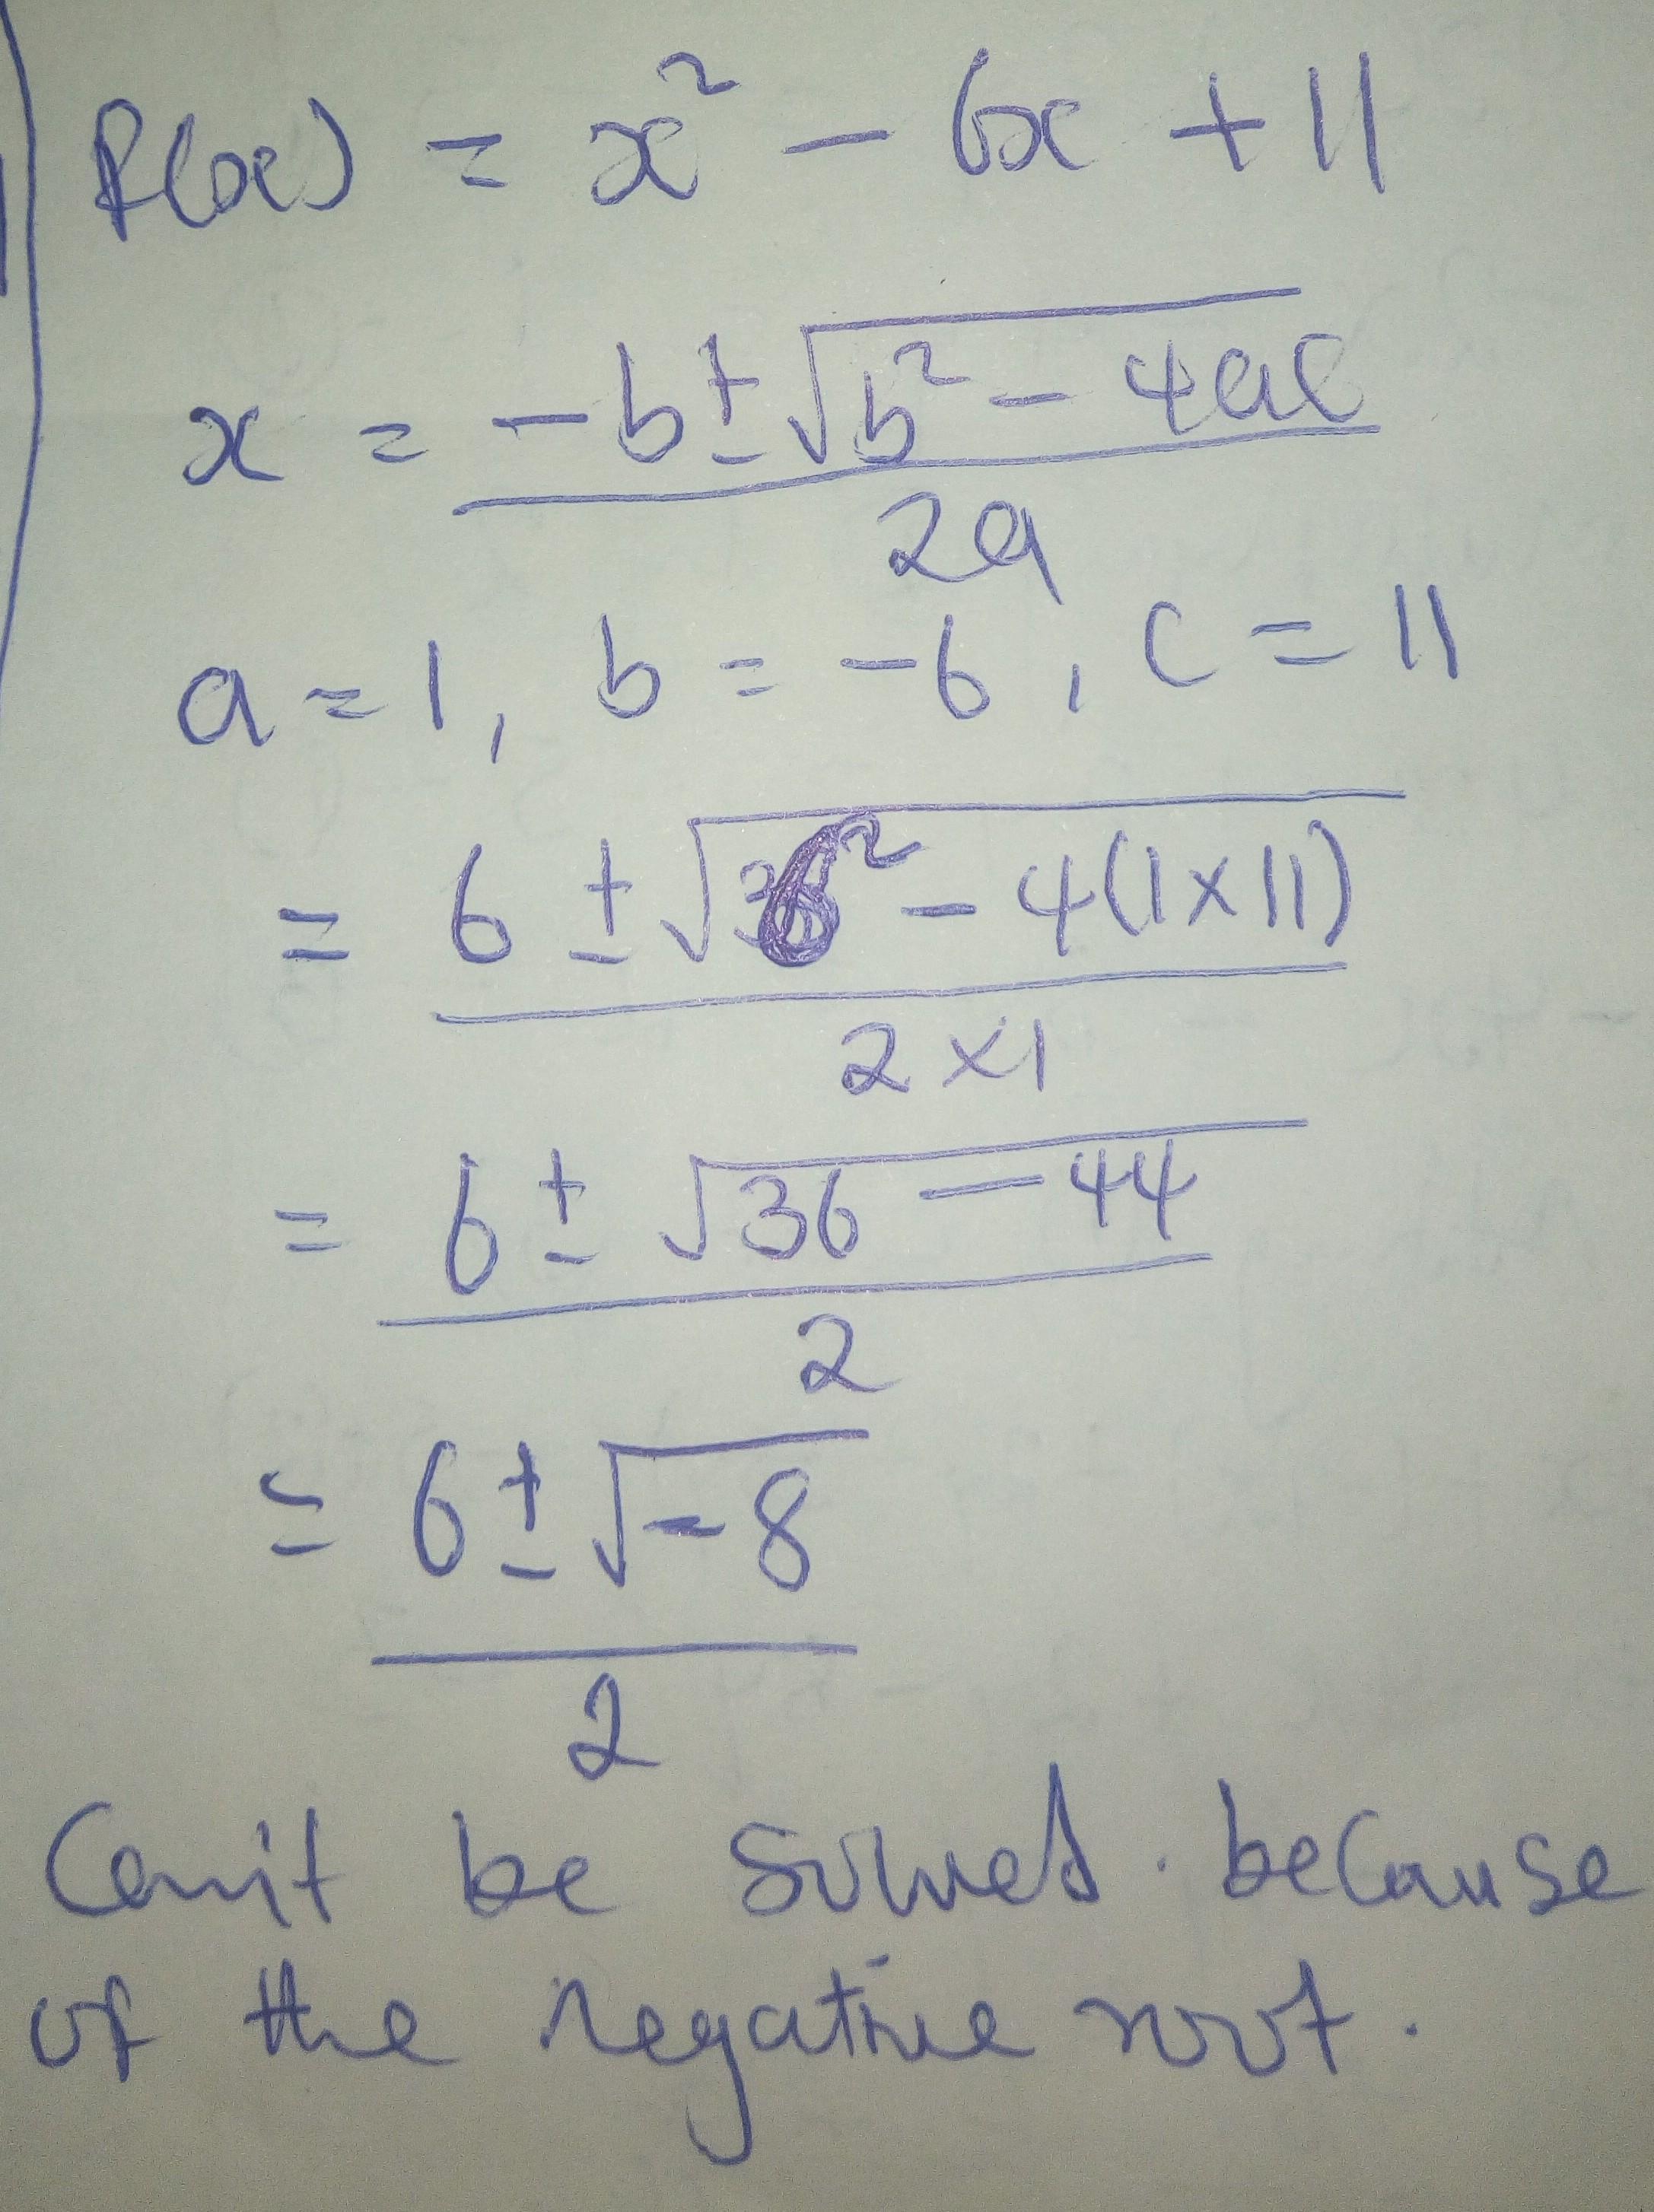 f(x) = x² - 6x + 11
x = (-b ± √(b² - 4ac)) / 2a
a = 1, b = -6, c = 11
= (6 ± √(6² - 4(1×11))) / (2×1)
= (6 ± √(36 - 44)) / 2
= (6 ± √(-8)) / 2
Can't be solved. because
of the negative root.